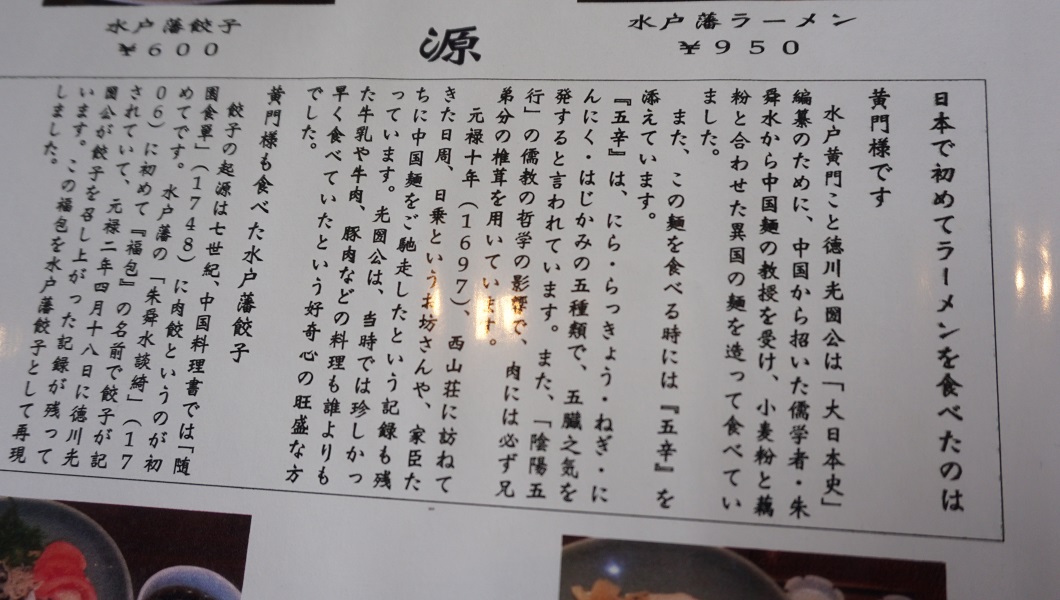 水戸藩餃子
¥600
源
水戸藩ラーメン
¥950
日本で初めてラーメンを食べたのは
黄門様です
水戸黄門こと徳川光圀公は「大日本史」
編纂のために、中国から招いた儒学者・朱
舜水から中国麺の教授を受け、小麦粉と藕
粉と合わせた異国の麺を造って食べてい
ました。
また、この麺を食べる時には『五辛』を
添えています。
『五辛』は、にら・らっきょう・ねぎ・に
んにく・はじかみの五種類で、五臓之気を
発すると言われています。また、「陰陽五
行」の儒教の哲学の影響で、肉には必ず兄
弟分の椎茸を用いています。
元禄十年(1697)、西山荘に訪ねて
きた日周、日乗というお坊さんや、家臣た
ちに中国麺をご馳走したという記録も残
っています。光圀公は、当時では珍しかっ
た牛乳や牛肉、豚肉などの料理も誰よりも
早く食べていたという好奇心の旺盛な方
でした。
黄門様も食べた水戸藩餃子
餃子の起源は七世紀、中国料理書では「随
園食単」(1748)に肉餃というのが初
めてです。水戸藩の「朱舜水談綺」(17
06)に初めて『福包』の名前で餃子が記
されていて、元禄二年四月十八日に徳川光
圀公が餃子を召し上がった記録が残って
います。この福包を水戸藩餃子として再現
しました。